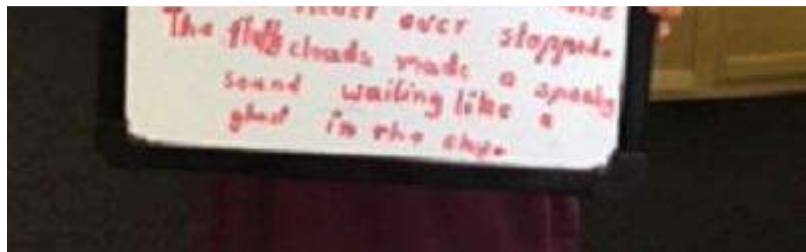 never ever stopped.
The fluffy clouds made a spooky
sound wailing like a
ghost in the sky.